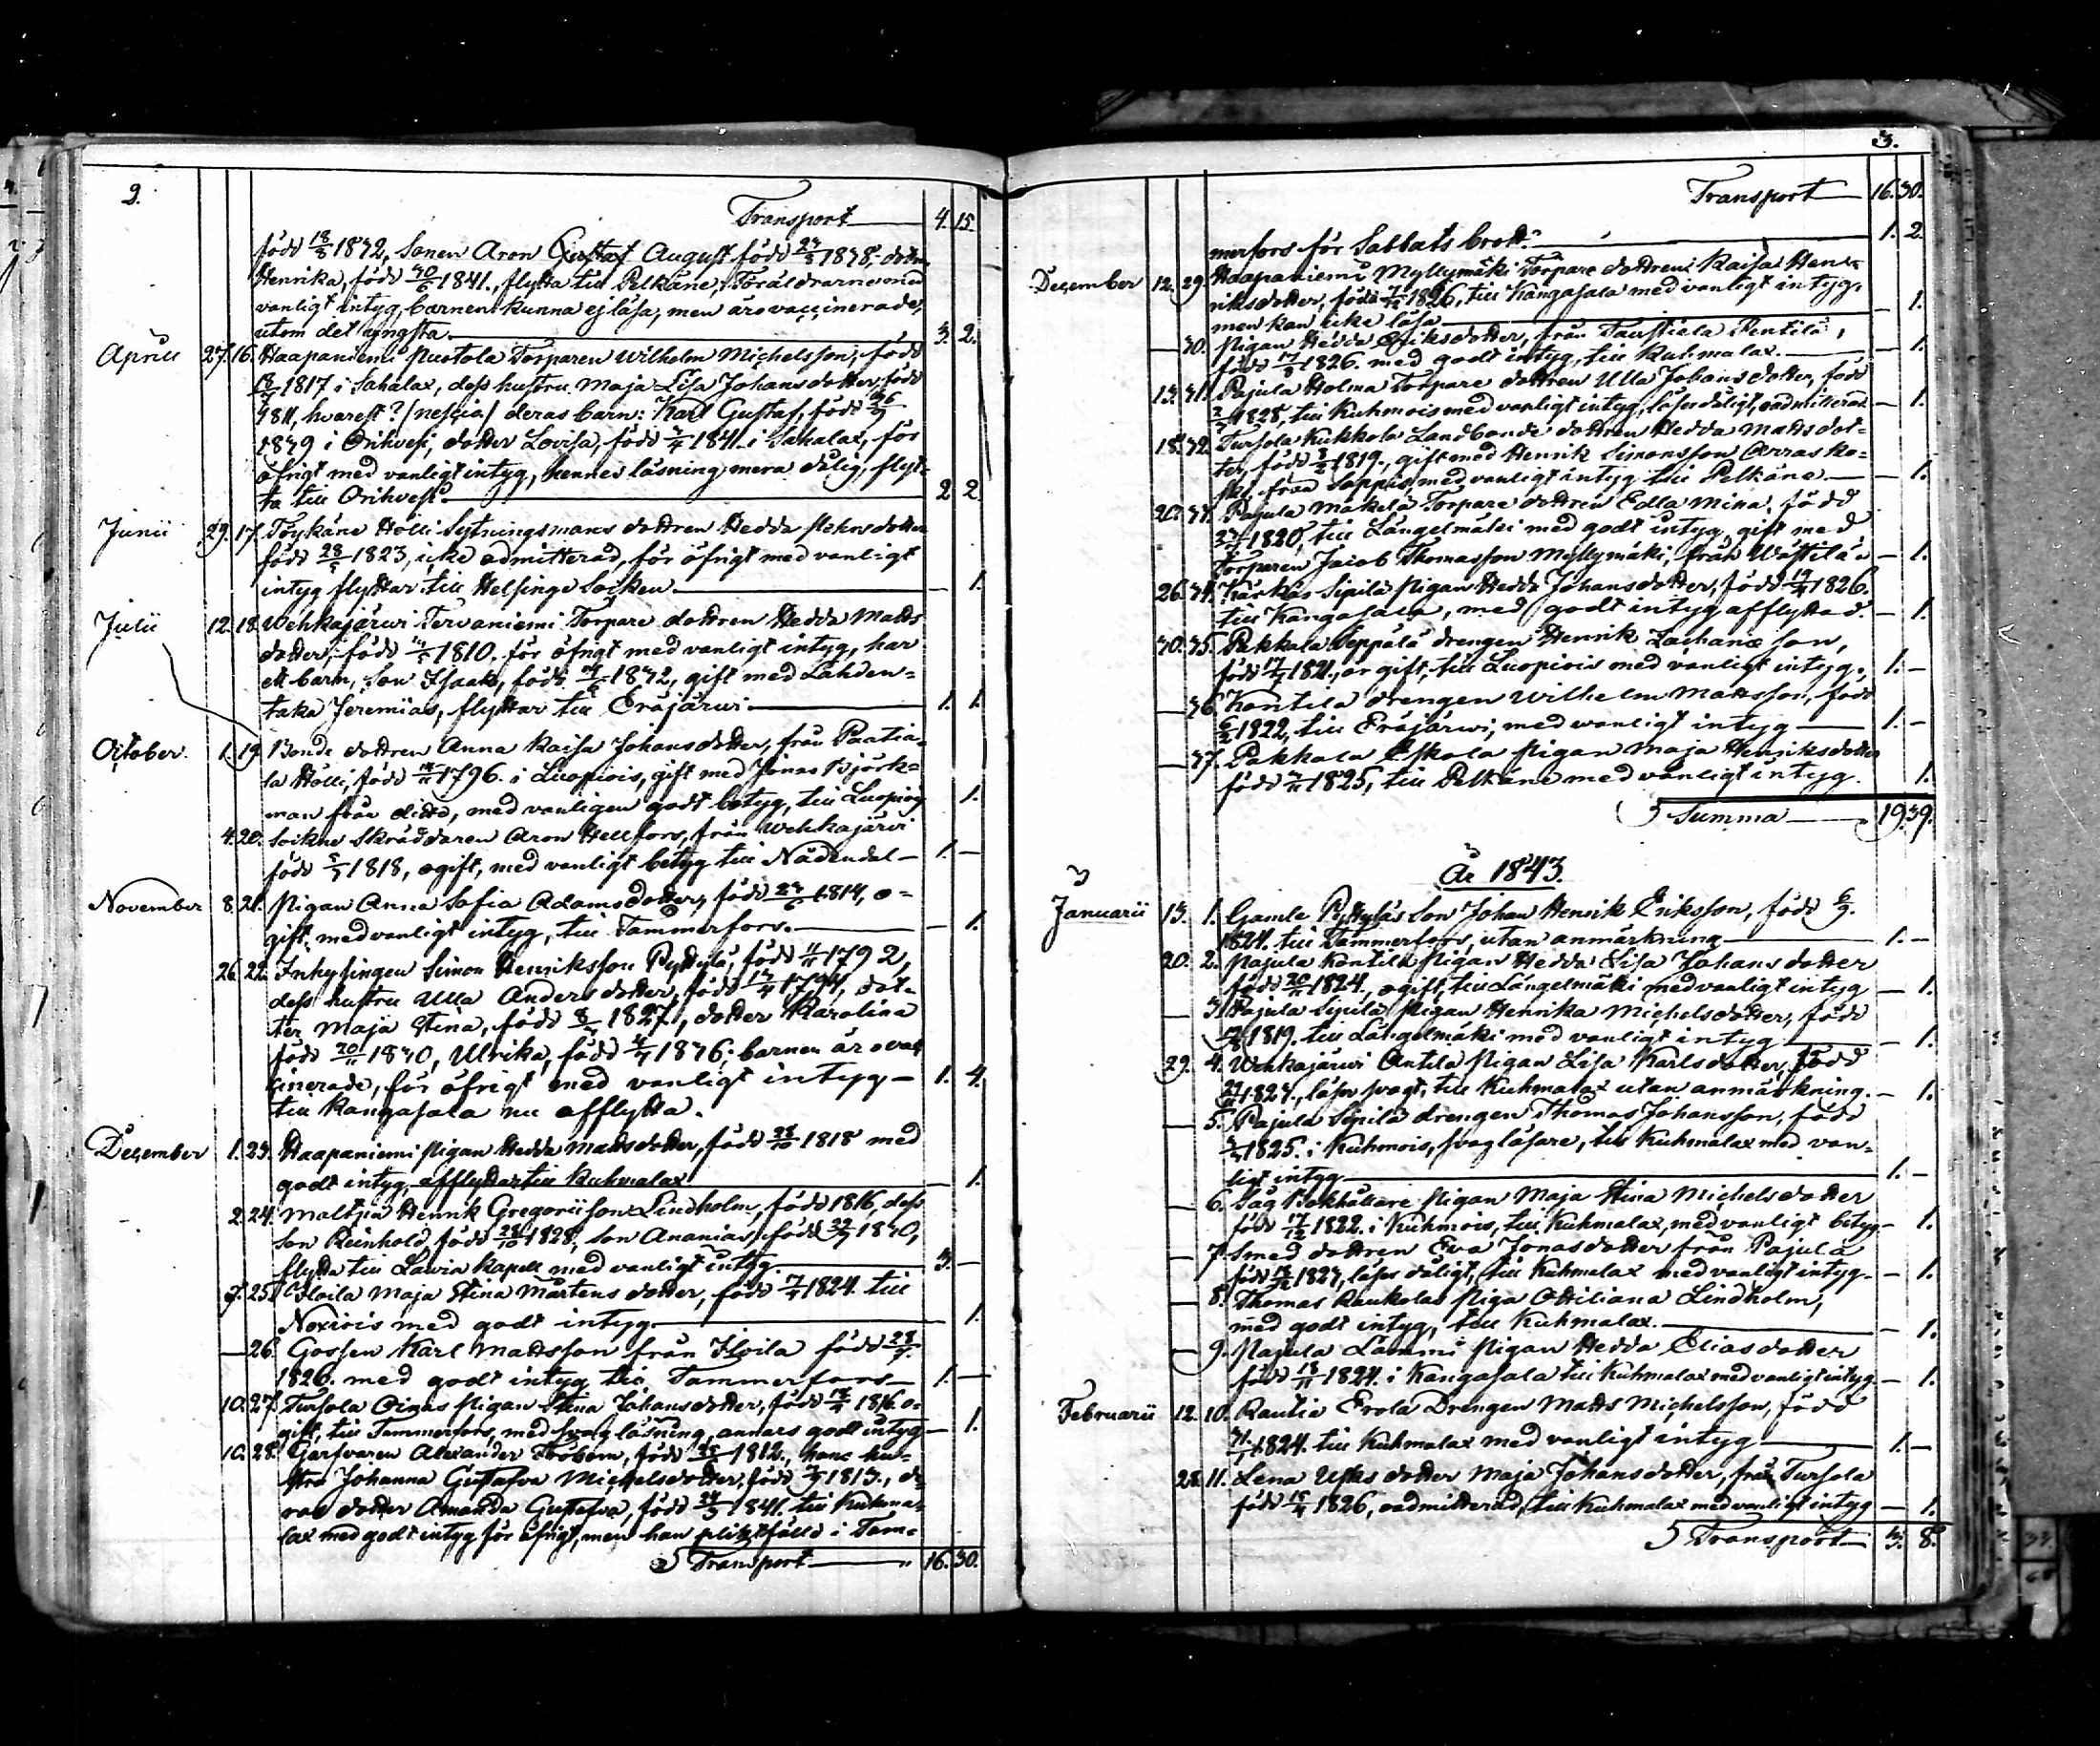 2.
Transport 4. 15
född 18/8 1832, Sonen Aron Gustaf August född 27/8 1838, dottren
Henrika, född 30/6 1841, flytta till Pelkäne, Föräldrarne med
vanligt intyg, barnen kunna ej läsa, men äro vaccinerade,
utom det yngsta. 3. 2.
Aprill 27. 16. Haapaniemi Torparen Wilhelm Michelsson, född
1817 i Sahalax, dess hustru Maja Lisa Johansdotter, född
1811, hvarest? (nescia) deras barn: Karl Gustaf, född
1839 i Orihvesi, dotter Lovisa, född 1841. i Sahalax, för
öfrigt med vanligt intyg, hennes läsning mera dålig, flyt-
ta till Orihvesi. 2 2.
Junii 29. 17. Töykäne Holli Sytningsmans dottren Hedda dotter
född 28/5 1823, icke admitterad, för öfrigt med vanligt
intyg flyttar till Helsinge Socken. — 1.
Julii 12. 18. Wehkajärwi Tervaniemi Torpare dottren Hedda Matts
dotter, född 1810. för öfrigt med vanligt intyg, har
ett barn, Son Isaak, född 1832, gift med Lahden-
taka Jeremias, flyttar till Eräjärwi. 1. 1.
October. 1. 19. Bonde dottren Anna Kaisa Johansdotter, från Paatia-
la Holli, född 1796. i Luopiois, gift med Jonas Björk-
man från ditto, med vanligen godt betyg, till Luopiois 1.
4. 20. Sockne Skräddaren Aron Hellfors, från Wehkajärwi
född 1818, ogift, med vanligt betyg till Nådendal — 1. —
November 8. 21. Pigan Anna Sofia Adamsdotter, född 23/6 1814, o-
gift, med vanligt intyg, till Tammerfors. — 1.
26. 22. Inhysingen Simon Henriksson Pyttylä, född 1792,
dess hustru Ulla Andersdotter, född 1794, dot-
ter Maja Stina, född 1827, dotter Karolina
född 1830, Ulrika, född 1836; barnen är ovac
cinerade, för öfrigt med vanligt intyg — 1. 4.
till Kangasala nu afflytta.
December 1. 23. Haapaniemi Pigan Hedda Mattsdotter, född 28/10 1818 med
godt intyg, afflyttar till Kuhmalax — 1.
2. 24. Maltjia Henrik Gregoriison Lindholm, född 1816, dess
son Reinhold, född 28/10 1828, son Ananias, född 1830,
flytta till Lavia Kapell med vanligt intyg. 3. —
9. 25. Hoila Maja Stina Mårtensdotter, född 1824. till
med godt intyg. 1.
— 26. Gossen Karl Mattsson från Hoila född
1826. med godt intyg till Tammerfors — 1. —
10. 27. Tursola Oinas Pigan Stina Johansdotter, född 1816. o-
gift, till Tammerfors, med svag läsning, annars godt intyg — 1.
10. 28. Garfvaren Alexander född 1812., hans hu-
stru Johanna Gustafva Michelsdotter, född 1813., de-
ras dotter Amanda Gustafva, född 1841. till Kuhma-
lax med godt intyg för öfrigt, men han pliktfälld i Tam-
Transport — 16. 30.
3.
Transport — 16. 30.
merfors för Sabbats brott. 1. 2.
December 12. 29. Haapaniemi Myllymäki Torpare dottren Kaisa Hen-
riksdotter, född 1826, till Kangasala med vanligt intyg,
men kan icke läsa — 1.
— 30. Pigan Hedda Eriksdotter, från Taustiala Pentilä,
född 1826. med godt intyg, till Kuhmalax. — 1.
13. 31. Pajula Holma Torpare dottren Ulla Johansdotter, född
1825, till Kuhmois med vanligt intyg, läser dåligt, oadmitterad — 1.
18. 32. Tursola Kukkola Landbonde dottren Hedda Mattsdot-
ter, född 1819, gift med Henrik Simonsson Orrasko-
ski från Sappee, med vanligt intyg till Pelkäne. — 1.
20. 33. Pajula Mäkelä Torpare dottren Edla Mina, född
1820, till Längelmäki med godt intyg, gift med
Torparen Jacob Thomasson Myllymäki, från Wästilä — 1.
26. 34. Kärkäs Sipilä Pigan Hedda Johansdotter, född 1826.
till Kangasala, med godt intyg afflyttad. — 1.
30. 35. Pakkala Seppälä drengen Henrik Zachariæ son,
född 1821, är gift, till Luopiois med vanligt intyg, 1. —
— 36. Kontila drengen Wilhelm Mattsson, född
1822, till Eräjärwi, med vanligt intyg — 1. —
— 37. Pakkala Eskola Pigan Maja Henriksdotter
född 1825, till Pelkäne med vanligt intyg. 1.
Summa — 19. 39.
År 1843.
Januarii 13. 1. Gamle Pyttyläs Son Johan Henrik Eriksson, född 6/9.
1824. till Tammerfors, utan anmärkning — 1. —
20. 2. Pajula Kontila Pigan Hedda Lisa Johansdotter
född 1824., ogift, till Längelmäki med vanligt intyg — 1.
— 3. Pajula Sipilä Pigan Henrika Michelsdotter, född
1819. till Längelmäki med vanligt intyg — 1.
29. 4. Wehkajärwi Antila Pigan Lisa Karlsdotter, född
1827., läser svagt, till Kuhmalax utan anmärkning. — 1.
— 5. Pajula Sipilä drengen Thomas Johansson, född
1825. i Kuhmois, svag läsare, till Kuhmalax med van-
ligt intyg — 1. —
— 6. Såg Bokhållare Pigan Maja Stina Michelsdotter
född 17/12 1822. i Kuhmois, till Kuhmalax, med vanligt betyg — 1.
— 7. Smed dottren Eva Jonasdotter från Pajula
född 1827, läser dåligt, till Kuhmalax med vanligt intyg. — 1.
— 8. Thomas Raukolas Piga Ottiliana Lindholm,
med godt intyg, till Kuhmalax. — 1.
— 9. Pajula Lammi Pigan Hedda Eliasdotter
född 18/11 1824. i Kangasala till Kuhmalax med vanligt intyg — 1.
Februarii 12. 10. Rautia Erola Drengen Matts Michelsson, född
1824. till Kuhmalax med vanligt intyg — 1. —
28. 11. Lena Usks dotter Maja Johansdotter, från Tursola
född 1826, oadmitterad, till Kuhmalax med vanligt intyg — 1.
Transport — 3. 8.